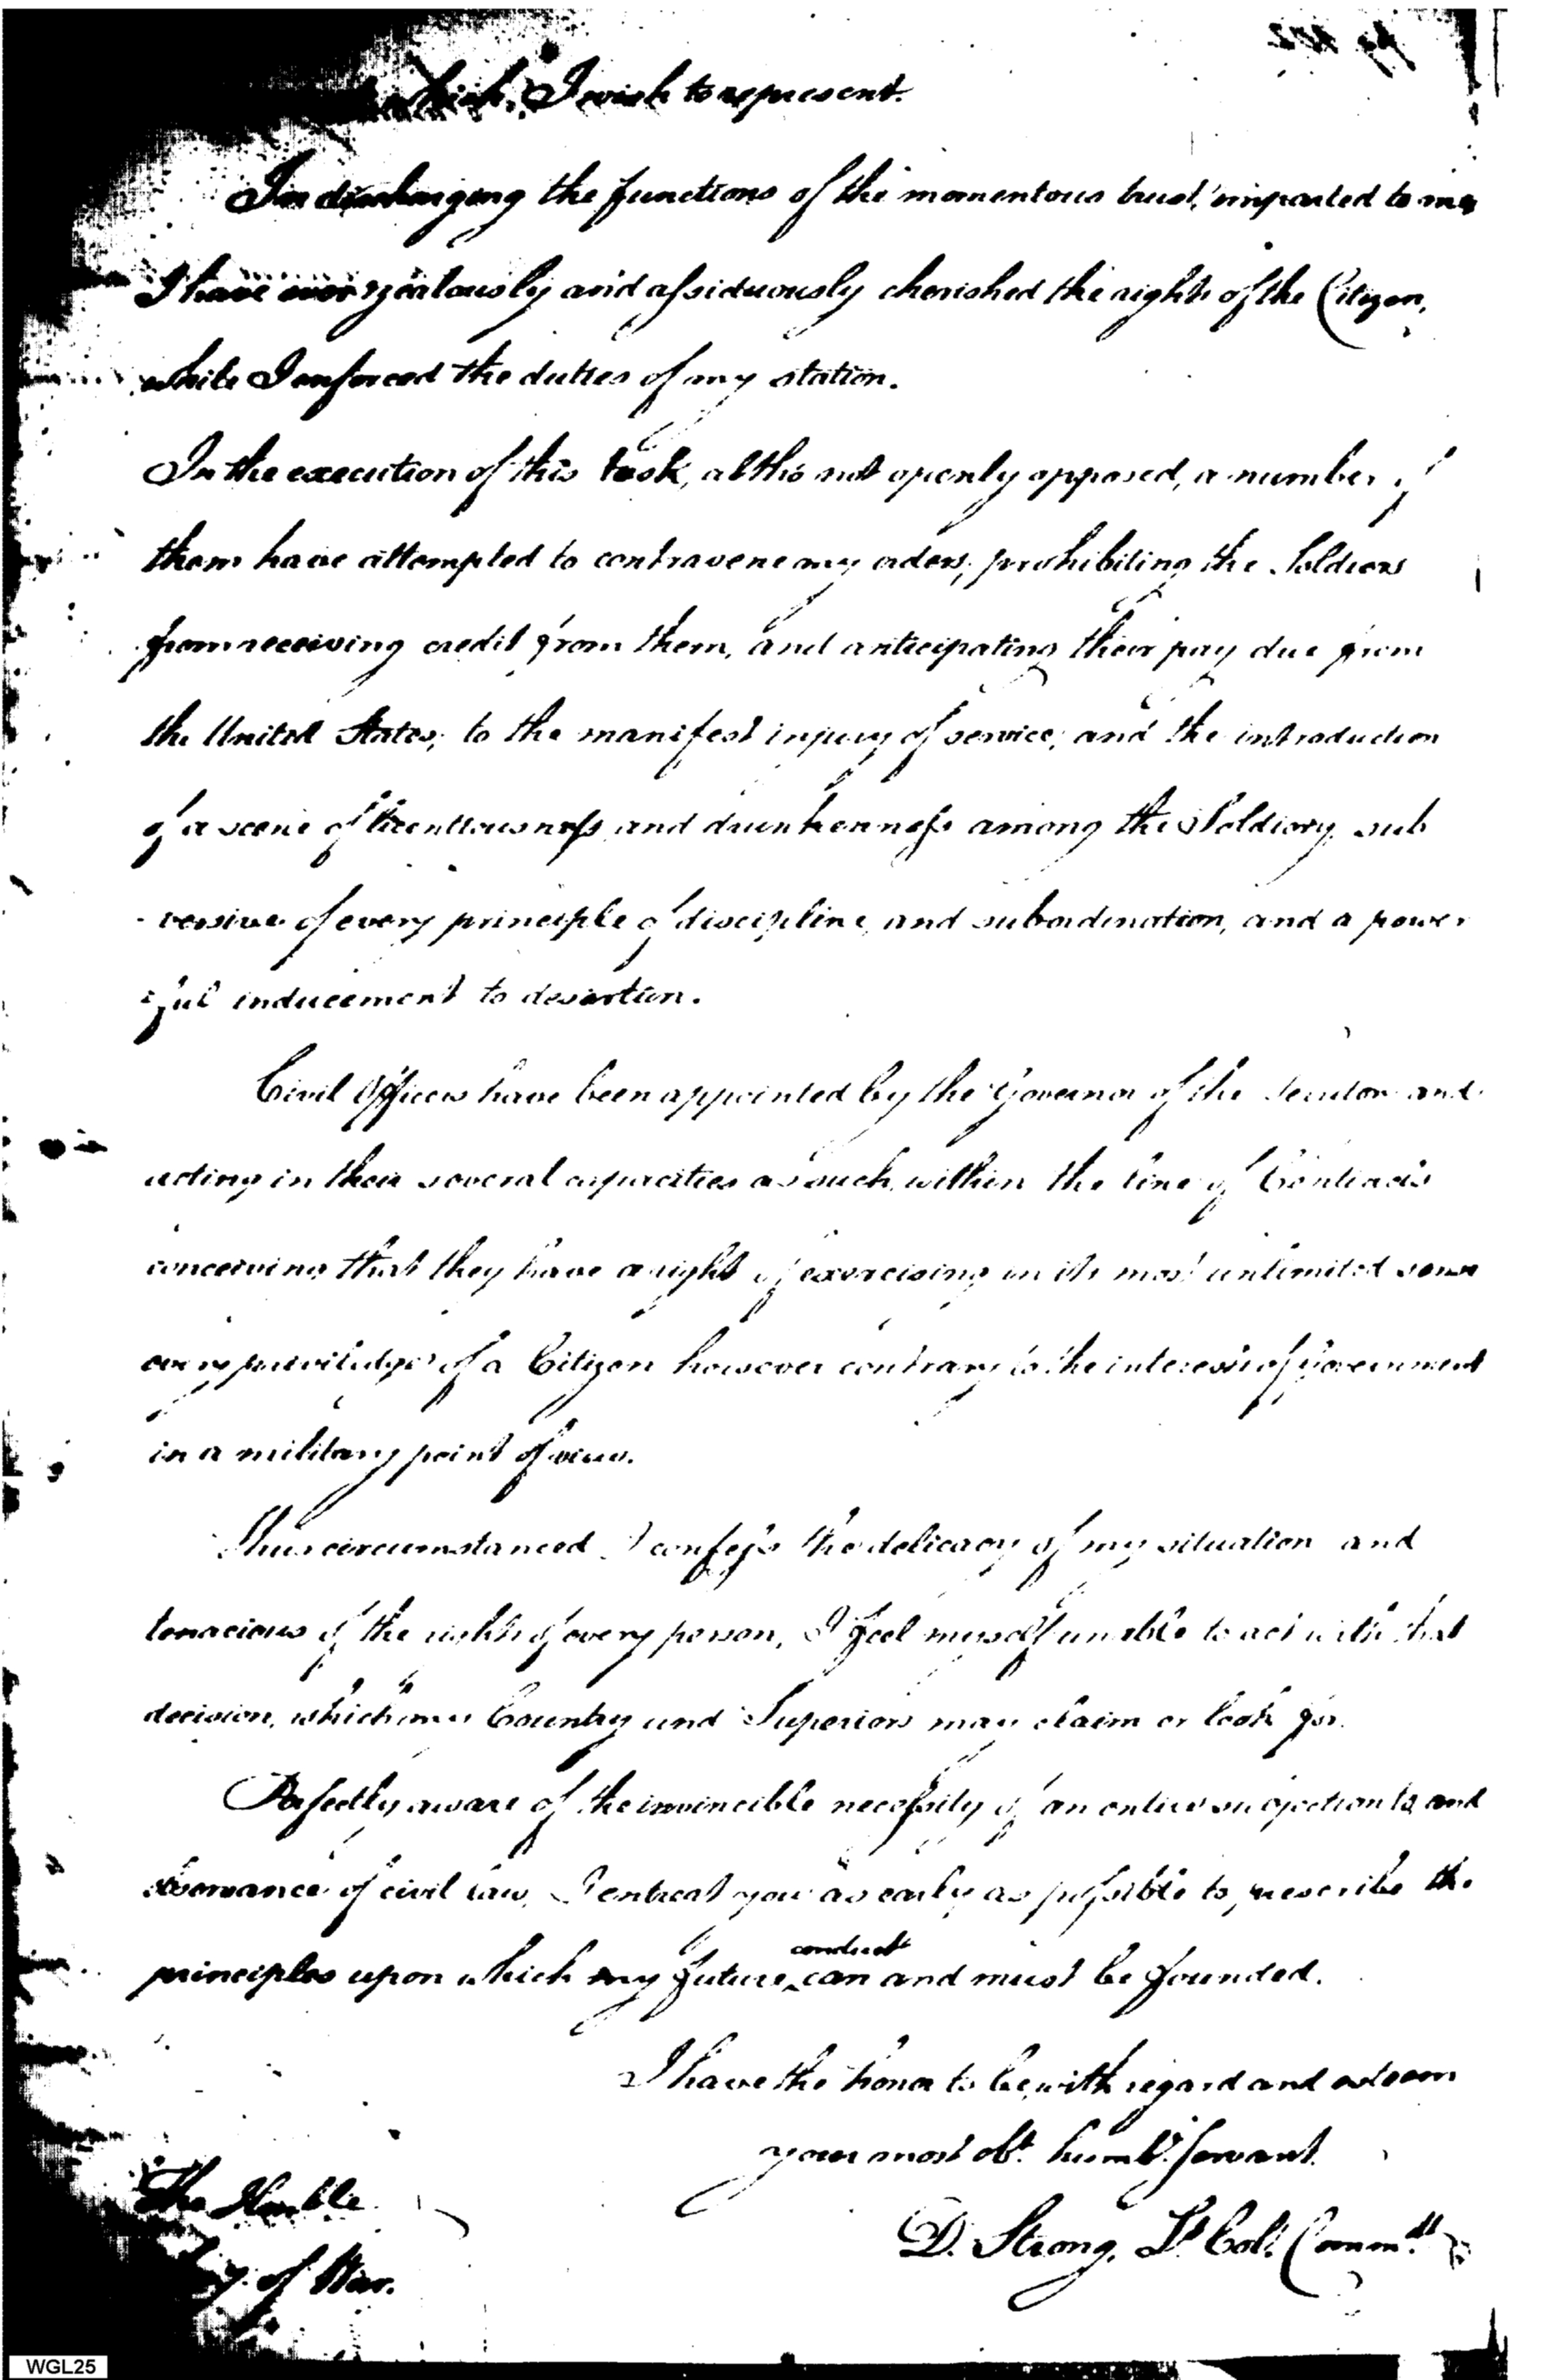 which, I wish to represent.
In discharging the functions of the momentous trust, imparted to me
I have ever zealously and assiduously cherished the rights of the Citizen,
while I enforced the duties of my station.
In the execution of this task, altho' not openly opposed, a number of
them have attempted to contravene my orders, prohibiting the Soldiers
from receiving credit from them, and anticipating their pay due from
the United States, to the manifest injury of service, and the introduction
of a scene of licentiousness and drunkenness among the Soldiery, sub
-versive of every principle of discipline, and subordination, and a power
-ful inducement to desertion.
Civil Officers have been appointed by the Governor of the and
acting in their several capacities as such, within the line of
conceiving that they have a right of exercising in its most unlimited sense
every priviledge of a Citizen however contrary to the interests of Government
in a military point of view.
Thus circumstanced I confess the delicacy of my situation and
tenacious of the rights of every person, I feel myself unable to act with that
decision, which my Country and Superiors may claim or look for.
Perfectly aware of the invincible necessity of an entire subjection to, and
observance of civil law, I entreat you as early as possible to prescribe the
principles upon which my future ^conduct can and must be founded.
I have the honor to be, with regard and esteem
your most obt. humbl. servant.
The Honble.
D. Strong, Lt. Colo. Commdt.
y. of War.
WGL25